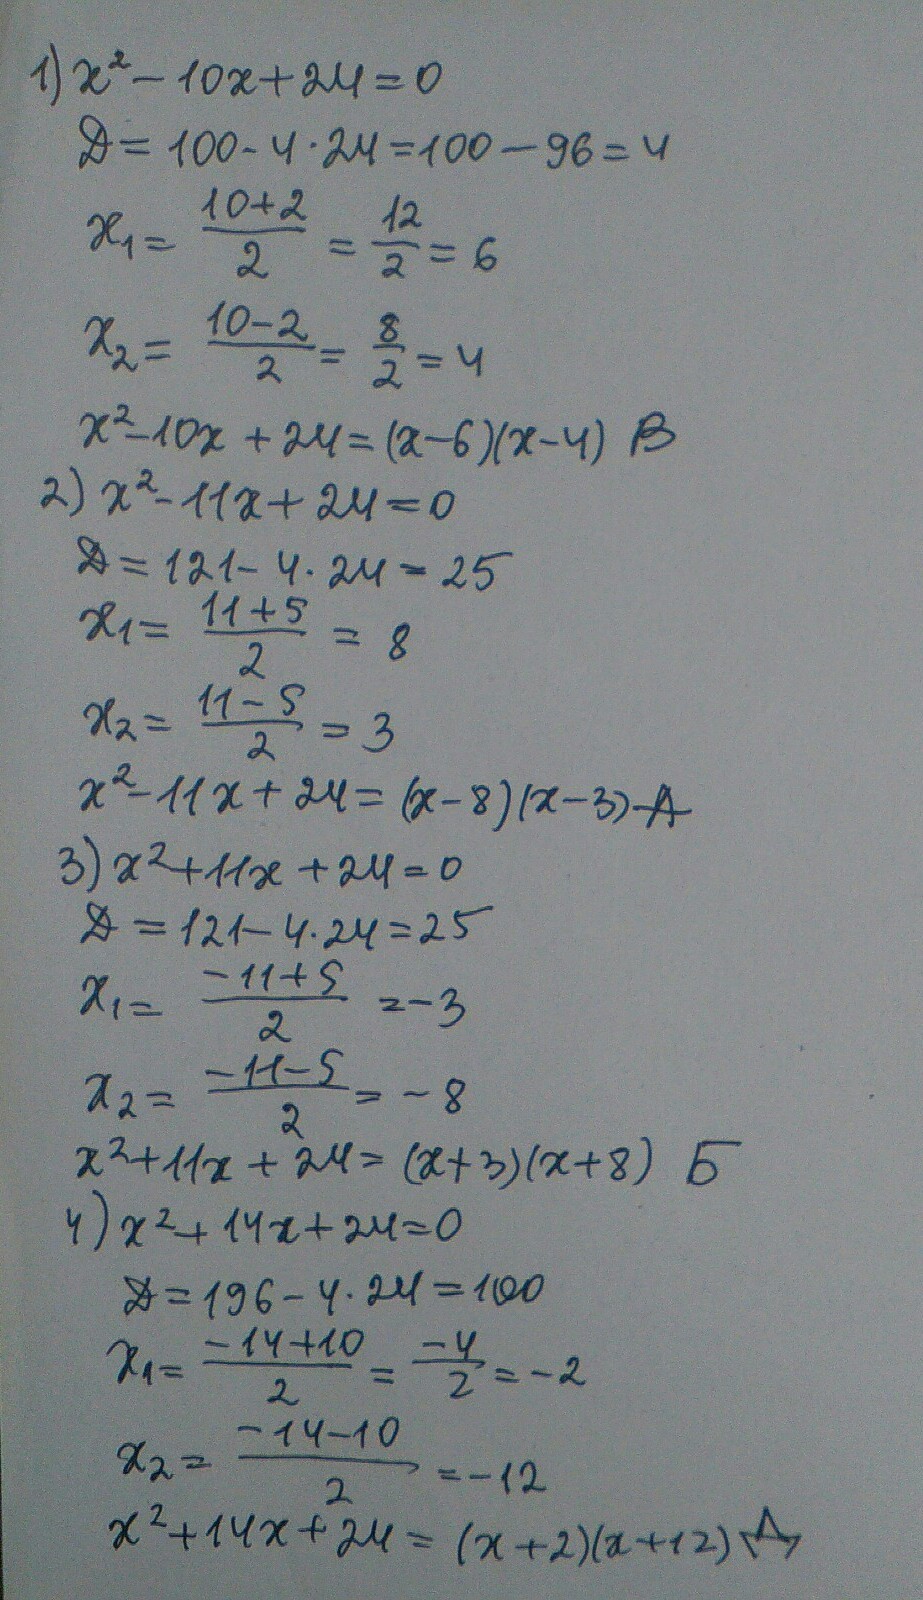 1) x² - 10x + 24 = 0
Д = 100 - 4·24 = 100 - 96 = 4
x₁ = (10+2)/2 = 12/2 = 6
x₂ = (10-2)/2 = 8/2 = 4
x² - 10x + 24 = (x-6)(x-4) В
2) x² - 11x + 24 = 0
Д = 121 - 4·24 = 25
x₁ = (11+5)/2 = 8
x₂ = (11-5)/2 = 3
x² - 11x + 24 = (x-8)(x-3) - А
3) x² + 11x + 24 = 0
Д = 121 - 4·24 = 25
x₁ = (-11+5)/2 = -3
x₂ = (-11-5)/2 = -8
x² + 11x + 24 = (x+3)(x+8) Б
4) x² + 14x + 24 = 0
Д = 196 - 4·24 = 100
x₁ = (-14+10)/2 = -4/2 = -2
x₂ = (-14-10)/2 = -12
x² + 14x + 24 = (x+2)(x+12) Д